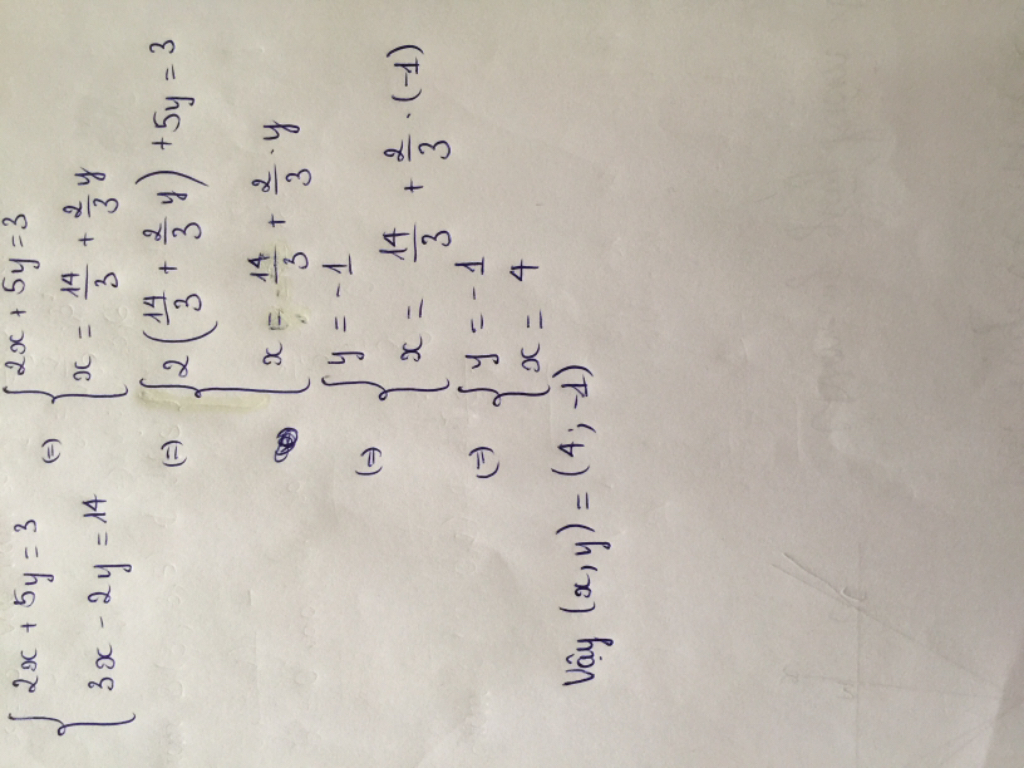 { 2x + 5y = 3
{ 3x - 2y = 14
(=) { 2x + 5y = 3
{ x = 14/3 + 2/3 y
(=) { 2(14/3 + 2/3 y) + 5y = 3
{ x = 14/3 + 2/3 . y
(=) { y = -1
{ x = 14/3 + 2/3 . (-1)
(=) { y = -1
{ x = 4
Vậy (x, y) = (4 ; -1)